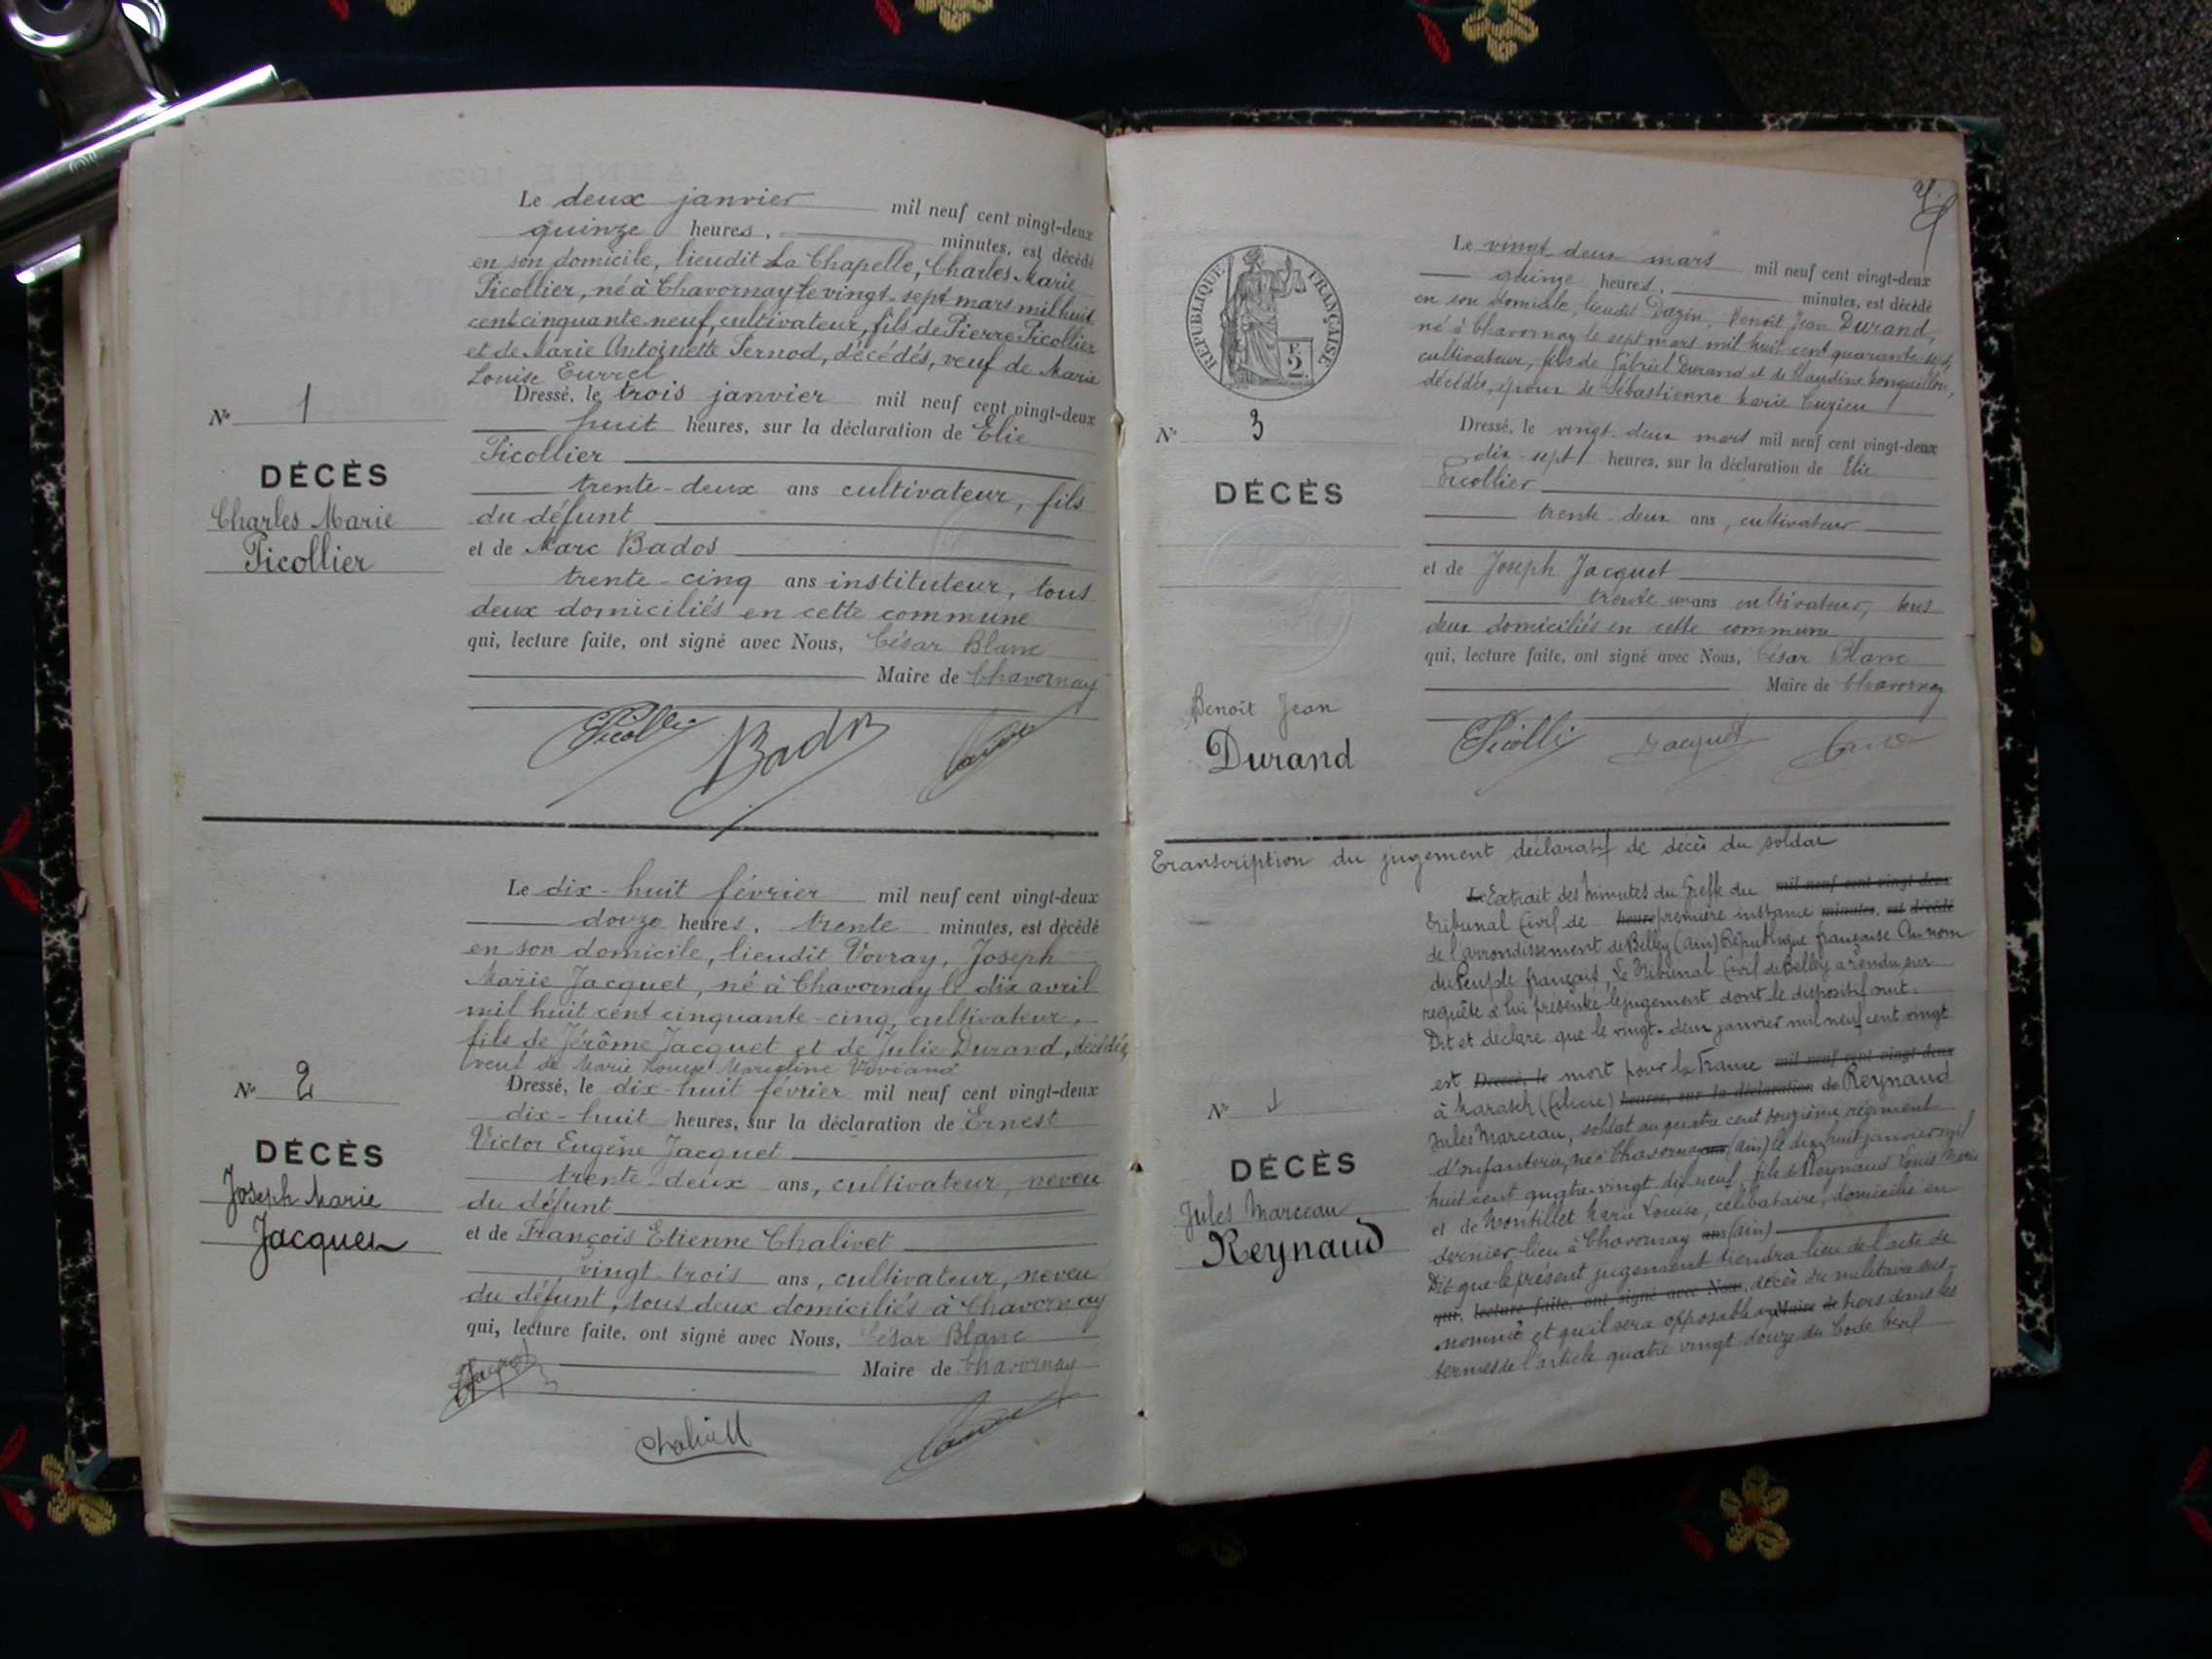 Le deux janvier mil neuf cent vingt-deux
quinze heures, minutes, est décédé
en son domicile, lieudit La Chapelle, Charles Marie
Picollier, né à Chavornay le vingt-sept mars mil huit
cent cinquante-neuf, cultivateur, fils de Pierre Picollier
et de Marie Antoinette Pernod, décédés, veuf de Marie
Louise
Dressé, le trois janvier mil neuf cent vingt-deux
huit heures, sur la déclaration de Elie
Picollier
trente-deux ans cultivateur, fils
du défunt
et de Marc Bados
trente-cinq ans instituteur, tous
deux domiciliés en cette commune
qui, lecture faite, ont signé avec Nous, César Blanc
Maire de Chavornay
Picolli Bados
N° 1
DÉCÈS
Charles Marie
Picollier
Le dix-huit février mil neuf cent vingt-deux
douze heures, trente minutes, est décédé
en son domicile, lieudit Vovray, Joseph
Marie Jacquet, né à Chavornay le dix avril
mil huit cent cinquante-cinq, cultivateur,
fils de Jérôme Jacquet et de Julie Durand, décédés,
veuf de Marie Louise
Dressé, le dix-huit février mil neuf cent vingt-deux
dix-huit heures, sur la déclaration de Ernest
Victor Eugène Jacquet
trente-deux ans, cultivateur, neveu
du défunt
et de François Etienne Chalivet
vingt-trois ans, cultivateur, neveu
du défunt, tous deux domiciliés à Chavornay
qui, lecture faite, ont signé avec Nous, César Blanc
Maire de Chavornay
N° 2
DÉCÈS
Joseph Marie
Jacquet
RÉPUBLIQUE FRANÇAISE
2
Le vingt-deux mars mil neuf cent vingt-deux
quinze heures, minutes, est décédé
en son domicile, lieudit Dazin, Benoît Jean Durand,
né à Chavornay le sept mars mil huit cent quarante-sept,
cultivateur, fils de Gabriel Durand et de Claudine
décédés, époux de Sébastienne Marie Cuzieu
Dressé, le vingt-deux mars mil neuf cent vingt-deux
dix-sept heures, sur la déclaration de Elie
Picollier
trente-deux ans, cultivateur
et de Joseph Jacquet
trente un ans cultivateur, tous
deux domiciliés en cette commune
qui, lecture faite, ont signé avec Nous, César Blanc
Maire de Chavornay
Picolli Jacquet
N° 3
DÉCÈS
Benoît Jean
Durand
Transcription du jugement déclaratif de décès du soldat
Le Extrait des Minutes du Greffe du mil neuf cent vingt-deux
Tribunal Civil de heure première instance minutes, est décédé
de l'arrondissement de Belley (Ain) République française Au nom
du Peuple français, Le Tribunal Civil de Belley a rendu sur
requête à lui présentée le jugement dont le dispositif suit.
Dit et déclare que le vingt-deux janvier mil neuf cent vingt
est Dressé, le mort pour la France mil neuf cent vingt-deux
à Marasch (Cilicie) heures, sur la déclaration de Reynaud
Jules Marceau, soldat au quatre cent douzième régiment
d'infanterie, né à Chavornay ans (Ain) le dix huit janvier mil
huit cent quatre-vingt-dix neuf, fils de Reynaud Louis Marie
et de Montillet Marie Louise, célibataire, domicilié en
dernier lieu à Chavornay ans (Ain)
Dit que le présent jugement tiendra lieu de l'acte de
qui, lecture faite, ont signé avec Nous, décès du militaire sus-
nommé et qu'il sera opposable aux Maire de tiers dans les
termes de l'article quatre vingt douze du Code Civil
N°
DÉCÈS
Jules Marceau
Reynaud